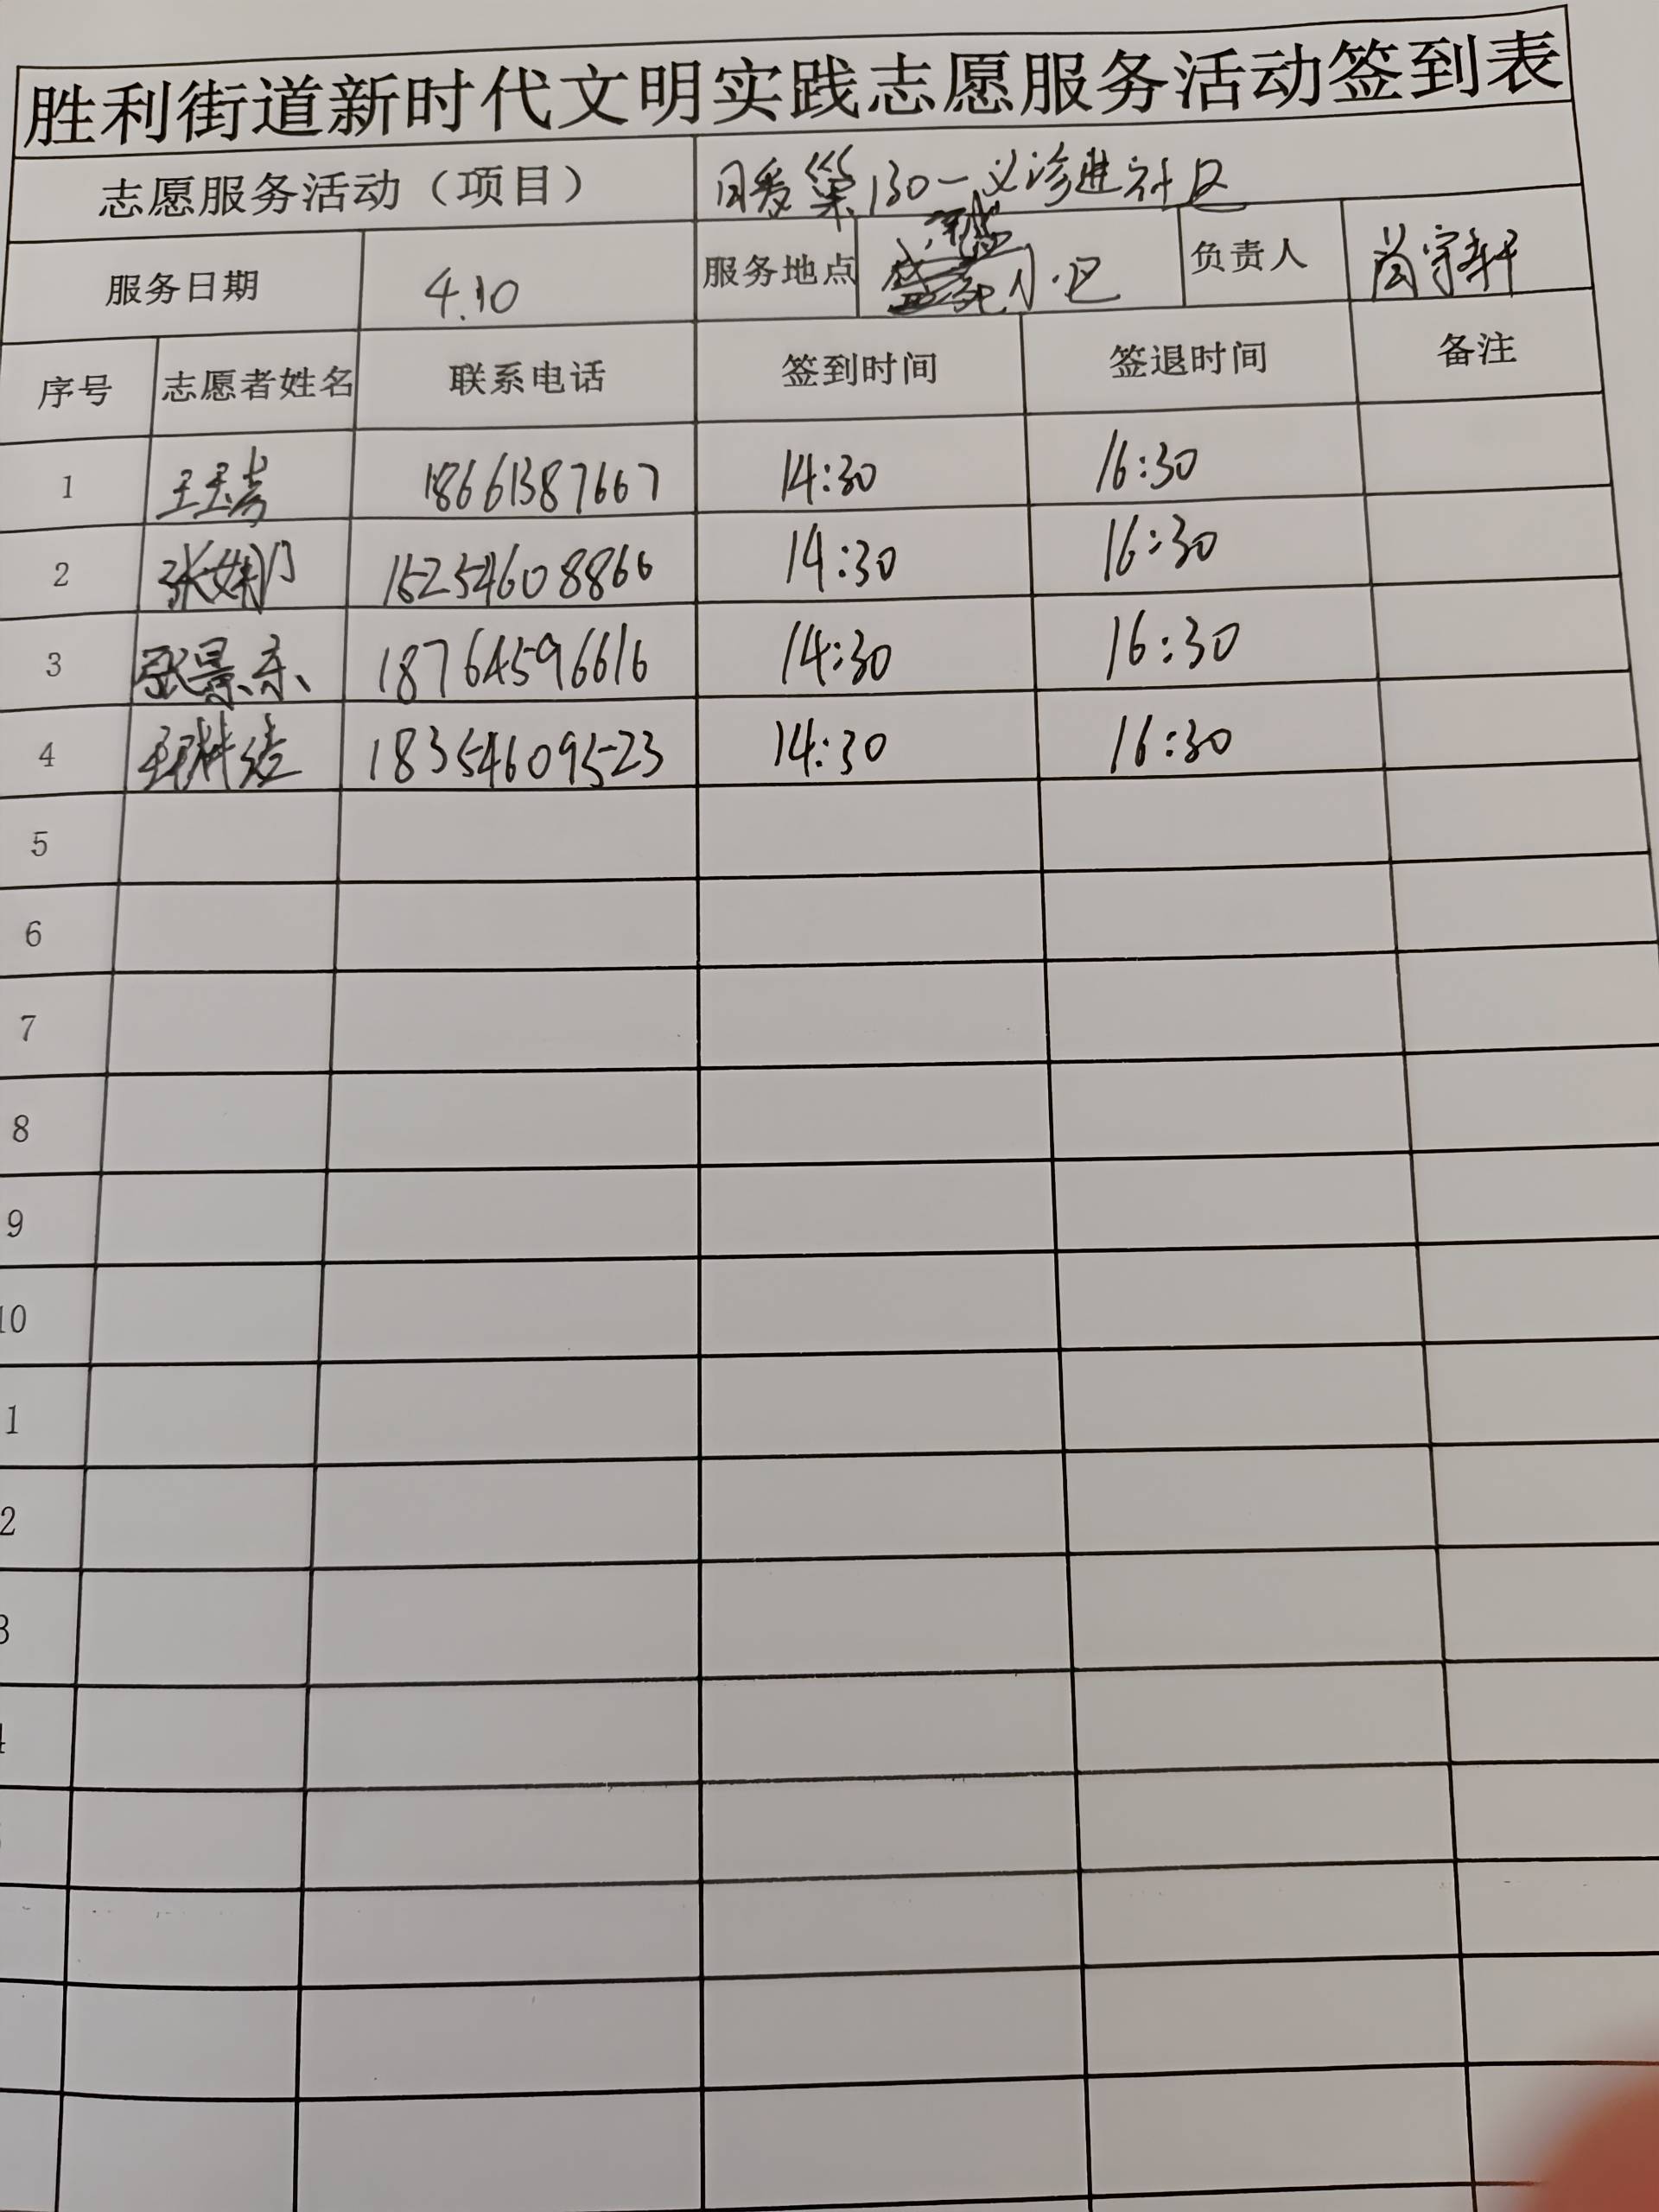 胜利街道新时代文明实践志愿服务活动签到表
志愿服务活动（项目） 日暖巢130一义诊进社区
服务日期 4.10 服务地点 小区 负责人 宇轩
序号 志愿者姓名 联系电话 签到时间 签退时间 备注
1 王玉 18661387667 14:30 16:30
2 张娜 15254608866 14:30 16:30
3 张景东 18764596616 14:30 16:30
4 18354609523 14:30 16:30
5
6
7
8
9
10
1
2
3
4